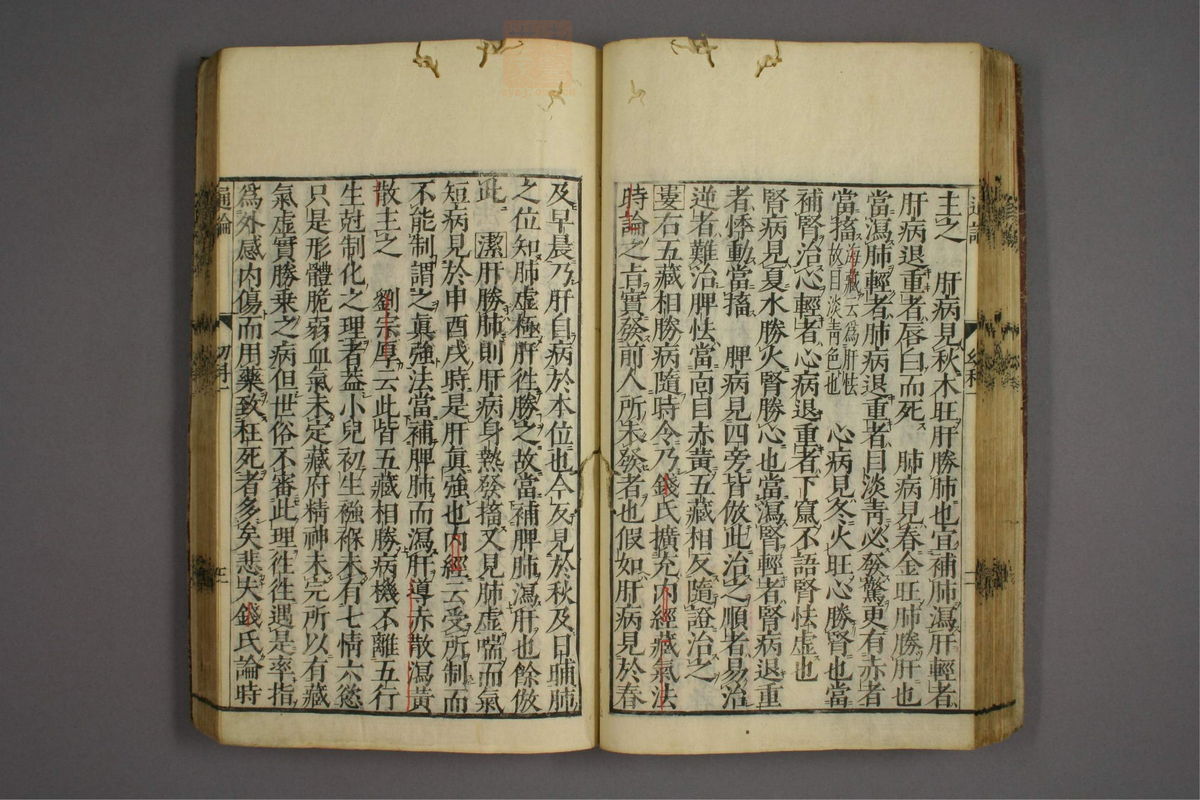 主之 肝病見秋木旺肝勝肺也宜補肺瀉肝輕者
肝病退重者唇白而死 肺病見春金旺肺勝肝也
當瀉肺輕者肺病退重者目淡青必發驚更有赤者
當搐海藏云爲肝怯故目淡青色也 心病見冬火旺心勝腎也當
補腎治心輕者心病退重者下竄不語腎怯虛也
腎病見夏水勝火腎勝心也當瀉腎輕者腎病退重
者悸動當搐 脾病見四旁皆倣此治之順者易治
逆者難治脾怯當面目赤黃五藏相反隨證治之
婁右五藏相勝病隨時令乃錢氏擴充內經藏氣法
時論之旨實發前人所未發者也假如肝病見於春
及早晨乃肝自病於本位也今反見於秋及日晡肺
之位知肺虛極肝徃勝之故當補脾肺瀉肝也餘倣
此 潔肝勝肺則肝病身熱發搐又見肺虛喘而氣
短病見於申酉戌時是肝眞強也內經云受所制而
不能制謂之眞強法當補脾肺而瀉肝導赤散瀉黃
散主之 劉宗厚云此皆五藏相勝病機不離五行
生尅制化之理者葢小兒初生襁褓未有七情六慾
只是形體脆弱血氣未定藏府精神未完所以有藏
氣虛實勝乘之病但世俗不審此理徃徃遇是率指
爲外感內傷而用藥致枉死者多矣悲夫錢氏論時
通論
幼科一